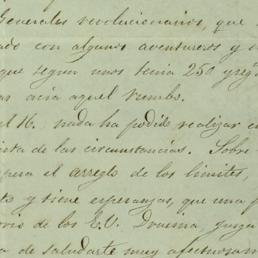 Generales revolucionarios, que
con algunos aventureros y
que segun unos tenia 250 y seg
acia aquel rumbo.
el 16. nada ha podido realizar
de las circunstancias. Sobre
el arreglo de los limites,
y tiene esperanzas, que una
de los E.U. Domina, juzga
de saludarte muy afectuosam